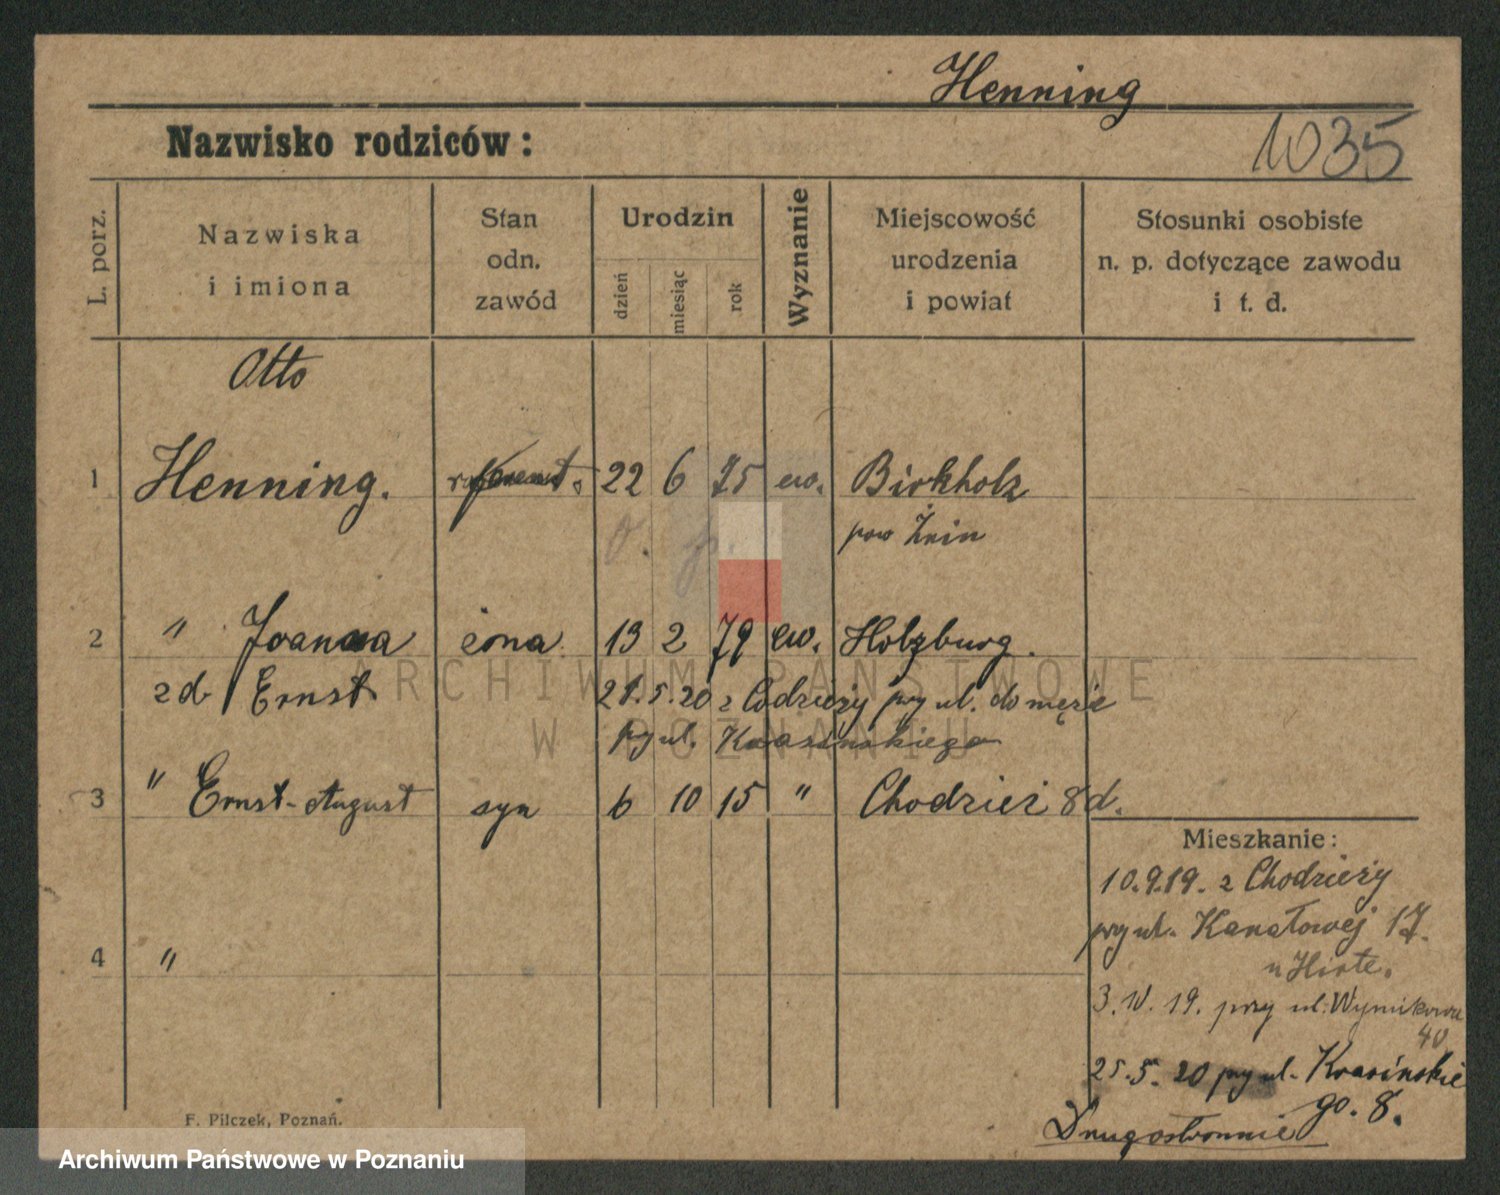 Henning
Nazwisko rodziców:
1035
L. porz.
Nazwiska
i imiona
Stan
odn.
zawód
Urodzin
dzień
miesiąc
rok
Wyznanie
Miejscowość
urodzenia
i powiat
Stosunki osobiste
n. p. dotyczące zawodu
i t. d.
Otto
1 Henning. 22 6 75 ew. Birkholz
pow Żnin
2 " Joanna żona 13 2 79 ew. Holzburg.
zd Ernst 21.5.20 z Codzieży przy ul. do męża
przy ul. Krasińskiego
3 " Ernst-August syn 6 10 15 " Chodzież 8d.
Mieszkanie:
10.9.19. z Chodzieży
przy ul. Kanałowej 17.
u Hirte.
4 "
3.10.19. przy ul.
40
25.5.20 przy ul. Krasińskie
go. 8.
Drugostronnie
F. Pilczek, Poznań.
ARCHIWUM PAŃSTWOWE
W POZNANIU
Archiwum Państwowe w Poznaniu